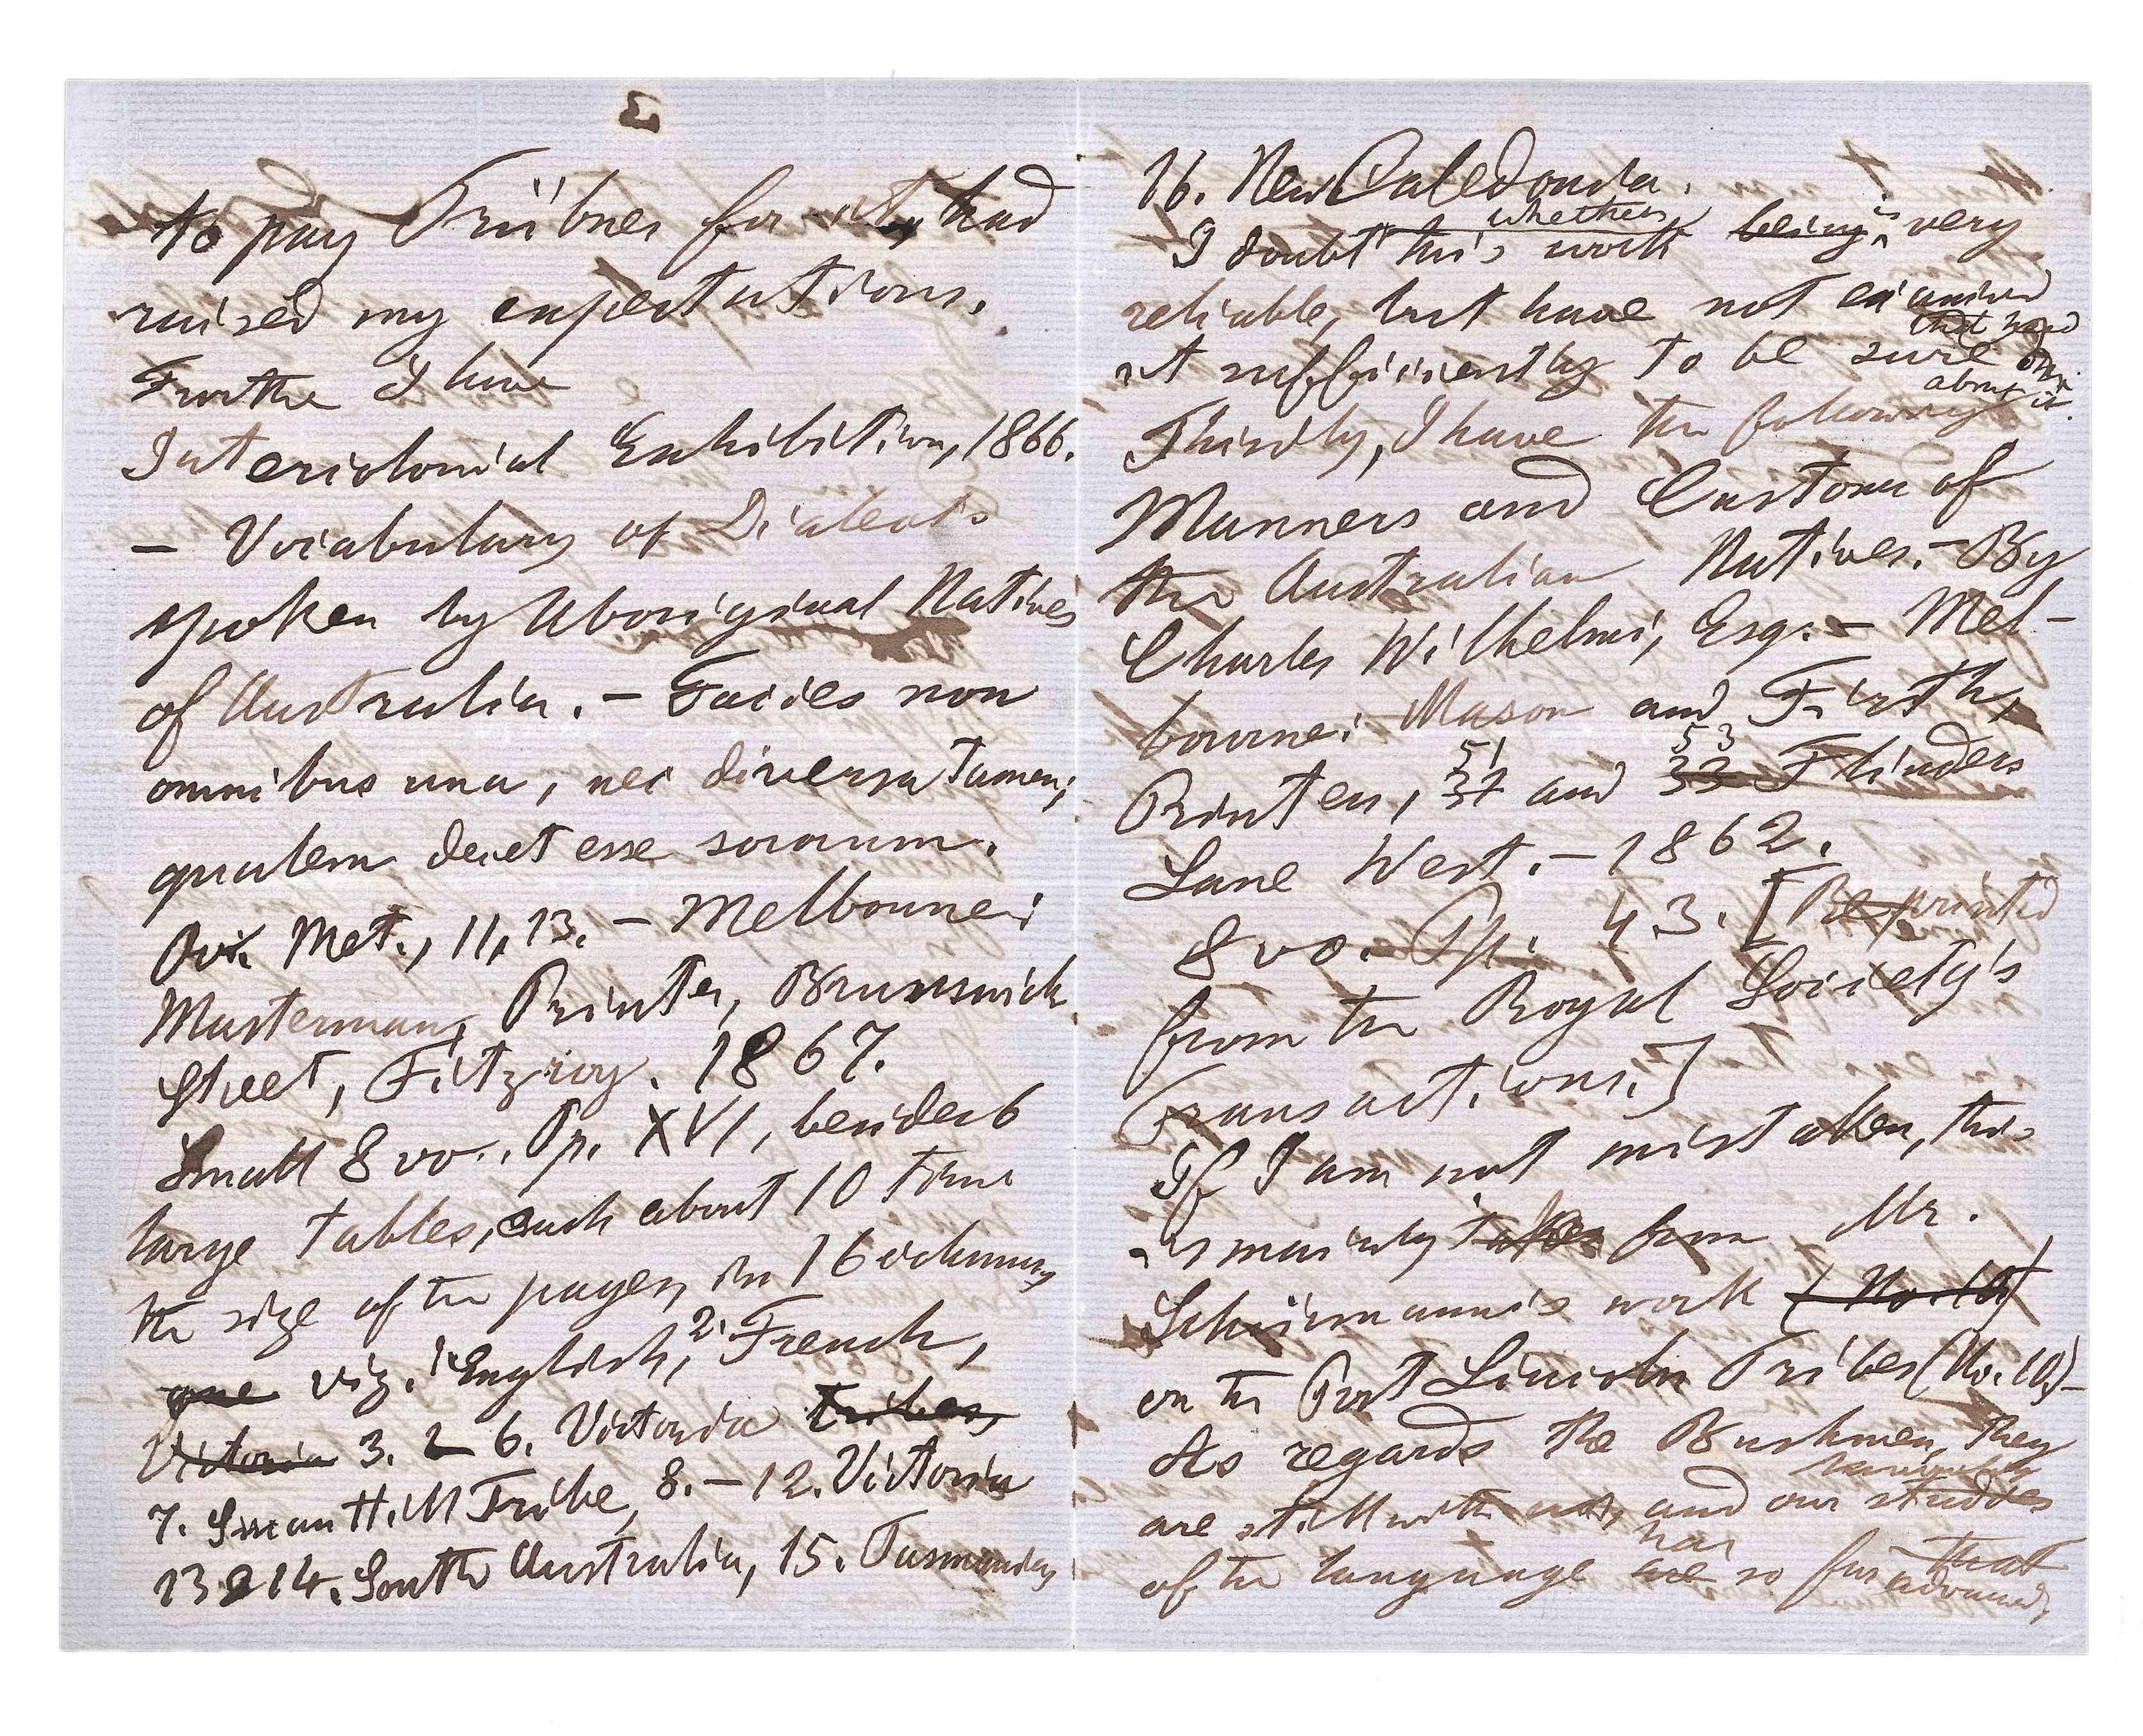 3
to pay Trübner for it, had
raised my expectations.
Further I have
Intercolonial Exhibition, 1866.
— Vocabulary of Dialects
spoken by Aboriginal Natives
of Australia. — Facies non
omnibus una, nec diversa tamen;
qualem decet esse sororum.
Ovi. Met., 11, 13. — Melbourne:
Masterman, Printer, Brunswick
Street, Fitzroy. 1867.
Small 8vo. Pp. XVI, besides 6
large tables, each about 10 times
the size of the pages, in 16 columns
one viz. 1. English, 2. French,
Victoria 3. – 6. Victoria tribes,
7. Swan Hill Tribe, 8. – 12. Victoria
13 & 14. South Australia, 15. Tasmania,
16. New Caledonia.
I doubt whether this work being is very
reliable, but have not examined
it sufficiently to be sure
about it.
Thirdly, I have the following
Manners and Customs of
the Australian Natives. – By
Charles Wilhelmi, Esq. – Mel-
bourne: Mason and Firth,
51 53
Printers, 37 and 33 Flinders
Lane West. – 1862.
8vo. Pp. 43. [Reprinted
from the Royal Society's
Transactions.]
If I am not mistaken, this
is mainly taken from Mr.
Schürmann's work (No. 10)
on the Port Lincoln Tribes (No. 10.) –
As regards the Bushmen, they
are still with us, and our studies
of the language are has so far that
advanced,